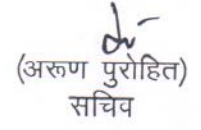 (अरूण पुरोहित)
सचिव